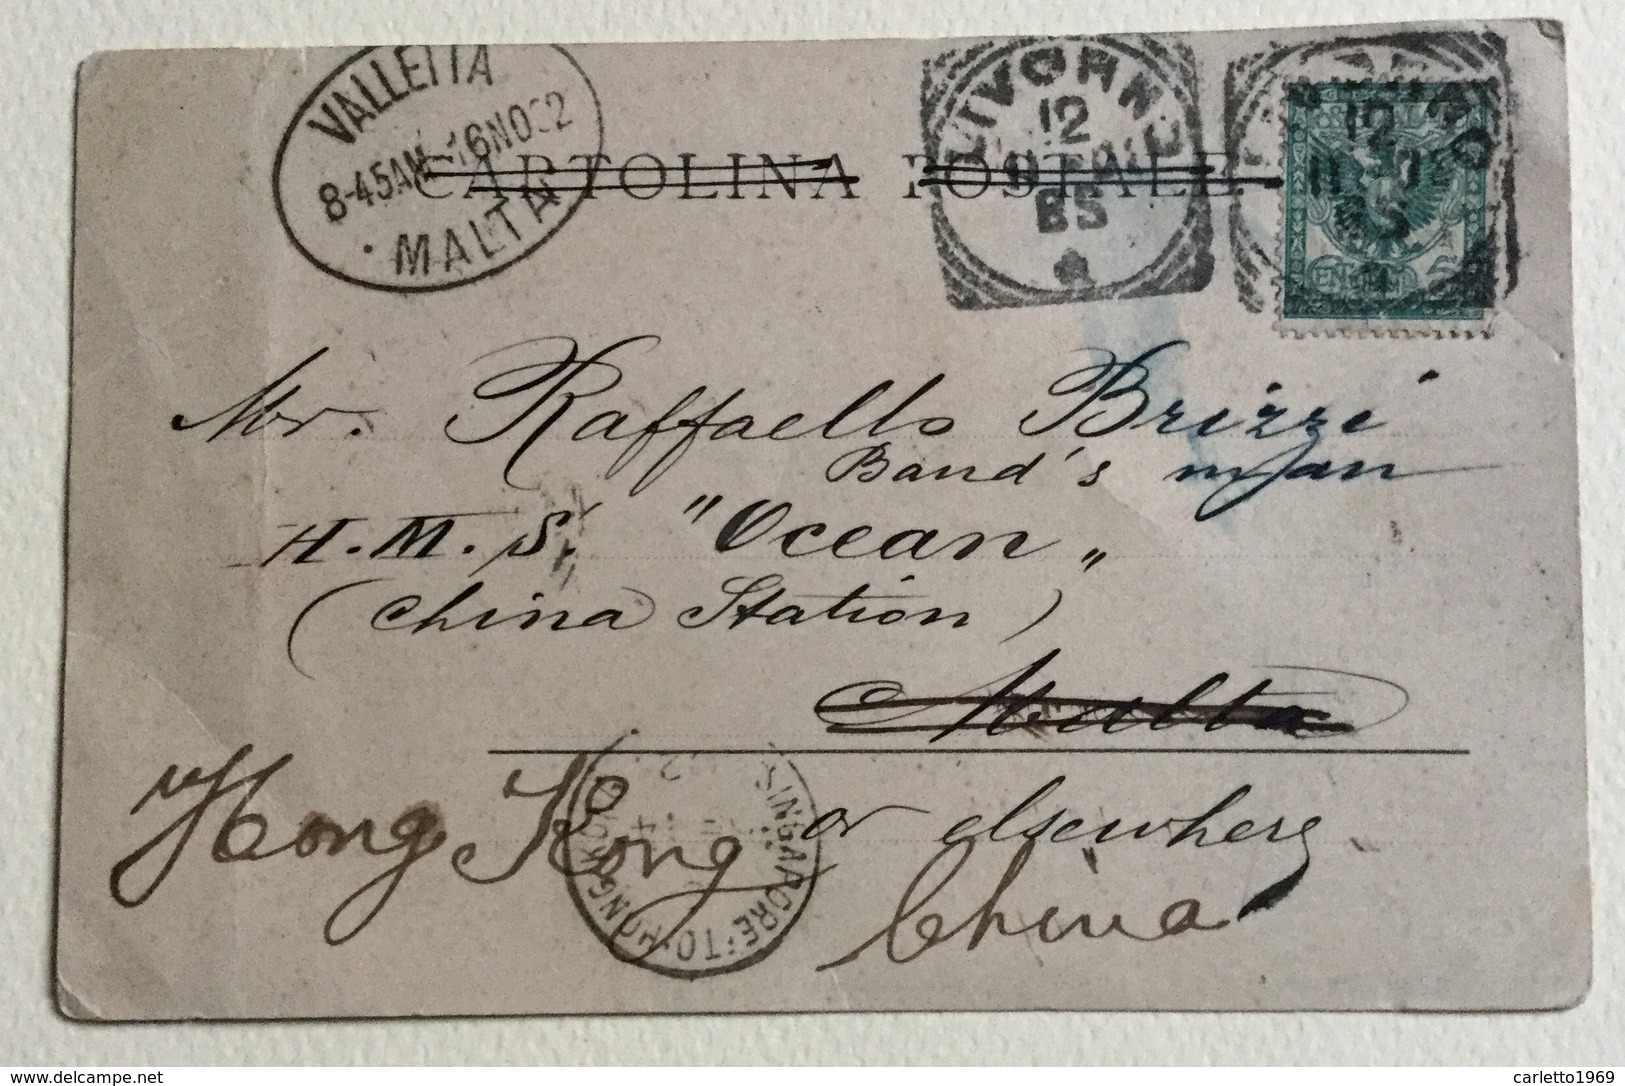 VALLETTA
8-45AM 16NO02
MALTA
CARTOLINA POSTALE
LIVORNO
12
BS
12
Mr. Raffaello Brizzi
Band's man
H.M.S. "Ocean"
(China Station)
Malta
Hong Kong or elsewhere
China
SINGAPORE TO HONG KONG
delcampe.net
carletto1969